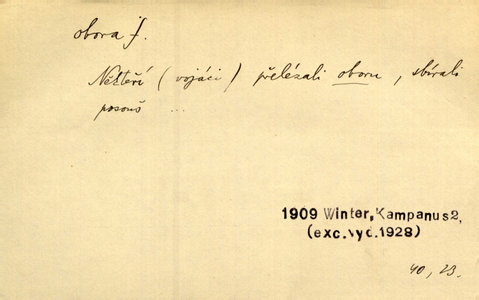 obora f.
Někteří (vojáci) přelézali oboru, sbírali
posouš ...
1909 Winter, Kampanus 2,
(exc.vyd.1928)
40, 23.